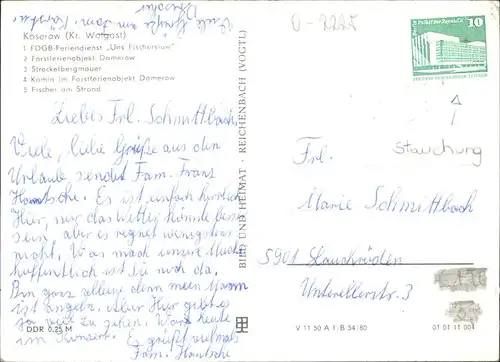 Viele Grüße am Tom. Kirscher
Drescher
0-2225
Koserow (Kr. Wolgast)
1 FDGB-Feriendienst „Uns Fischersiun"
2 Forstferienobjekt Damerow
3 Streckelbergmauer
4 Kamin im Forstferienobjekt Damerow
5 Fischer am Strand
Liebes Frl. Schmittbach.
Viele, liebe Grüße aus den
Urlaub sendet Fam. Franz
Hantsche. Es ist einfach herrlich
hier, nur das Wetter könnte besser
sein, aber es regnet wenigstens
nicht. Was mach unsere
hoffentlich ist Sie noch da.
Bin ganz alleine denn mein Mann
ist angeln. Aber hier gibt es
so viel zu sehen. Waren heute
im Konzert. Es grüßt vielmals
Fam. Hantsche
DDR 0,25 M
BILD UND HEIMAT · REICHENBACH (VOGTL)
10
Stauchung
Frl.
Marie Schmittbach
5901 Lauchröden
Unterellerstr. 3
V 11 50 A 1 B 54/80
01 01 11 004